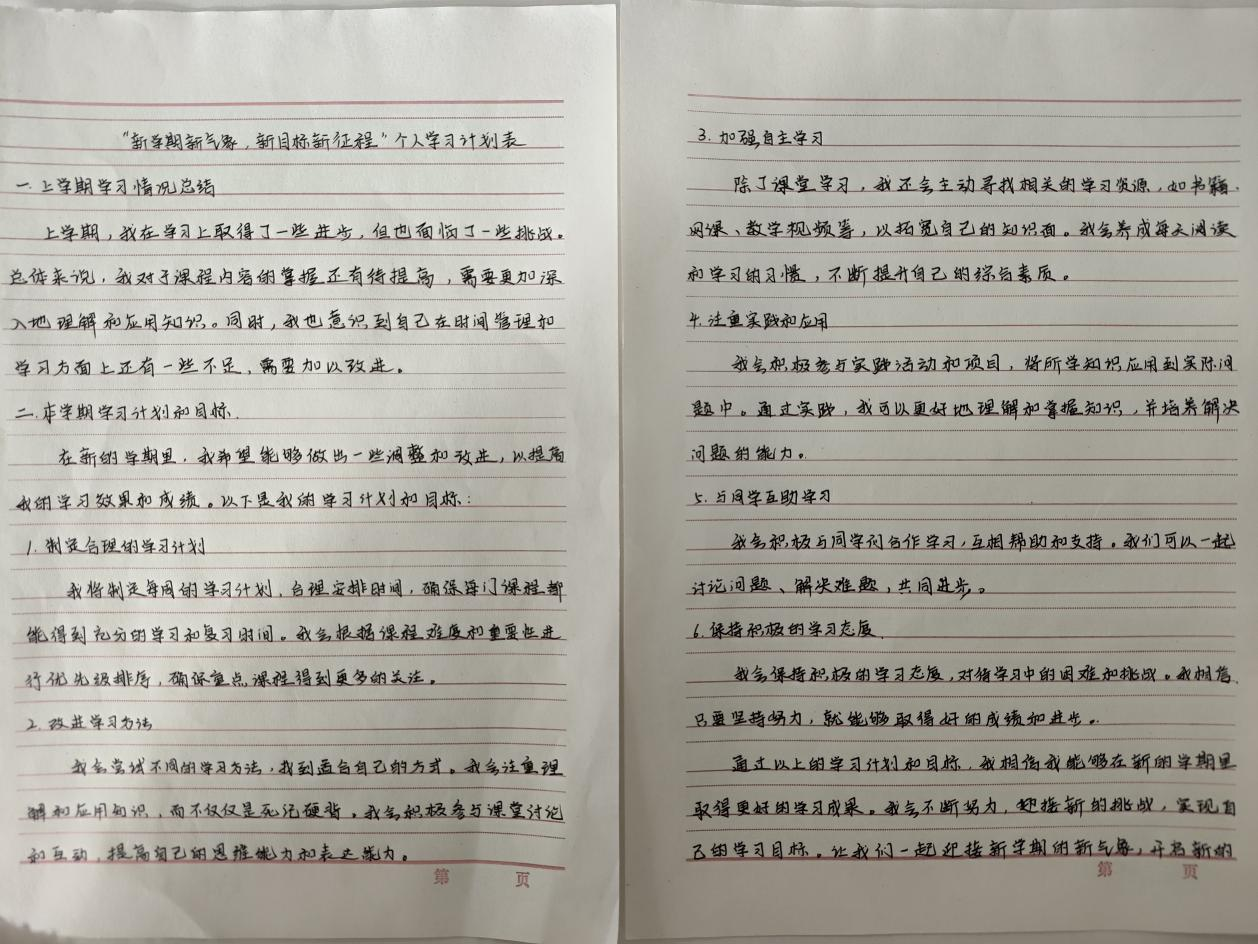 “新学期新气象，新目标新征程”个人学习计划表
一.上学期学习情况总结
上学期，我在学习上取得了一些进步，但也面临了一些挑战。
总体来说，我对于课程内容的掌握还有待提高，需要更加深
入地理解和应用知识。同时，我也意识到自己在时间管理和
学习方面上还有一些不足，需要加以改进。
二.本学期学习计划和目标.
在新的学期里，我希望能够做出一些调整和改进，以提高
我的学习效果和成绩。以下是我的学习计划和目标：
1.制定合理的学习计划
我将制定每周的学习计划，合理安排时间，确保每门课程都
能得到充分的学习和复习时间。我会根据课程难度和重要性进
行优先级排序，确保重点课程得到更多的关注。
2.改进学习方法
我会尝试不同的学习方法，找到适合自己的方式。我会注重理
解和应用知识，而不仅仅是死记硬背。我会积极参与课堂讨论
和互动，提高自己的思维能力和表达能力。
第 页
3.加强自主学习
除了课堂学习，我还会主动寻找相关的学习资源，如书籍、
网课、教学视频等，以拓宽自己的知识面。我会养成每天阅读
和学习的习惯，不断提升自己的综合素质。
4.注重实践和应用
我会积极参与实践活动和项目，将所学知识应用到实际问
题中。通过实践，我可以更好地理解和掌握知识，并培养解决
问题的能力。
5.与同学互助学习
我会积极与同学们合作学习，互相帮助和支持。我们可以一起
讨论问题、解决难题，共同进步。
6.保持积极的学习态度.
我会保持积极的学习态度，对待学习中的困难和挑战。我相信，
只要坚持努力，就能够取得好的成绩和进步。
通过以上的学习计划和目标，我相信我能够在新的学期里
取得更好的学习成果。我会不断努力，迎接新的挑战，实现自
己的学习目标。让我们一起迎接新学期的新气象，开启新的
第 页